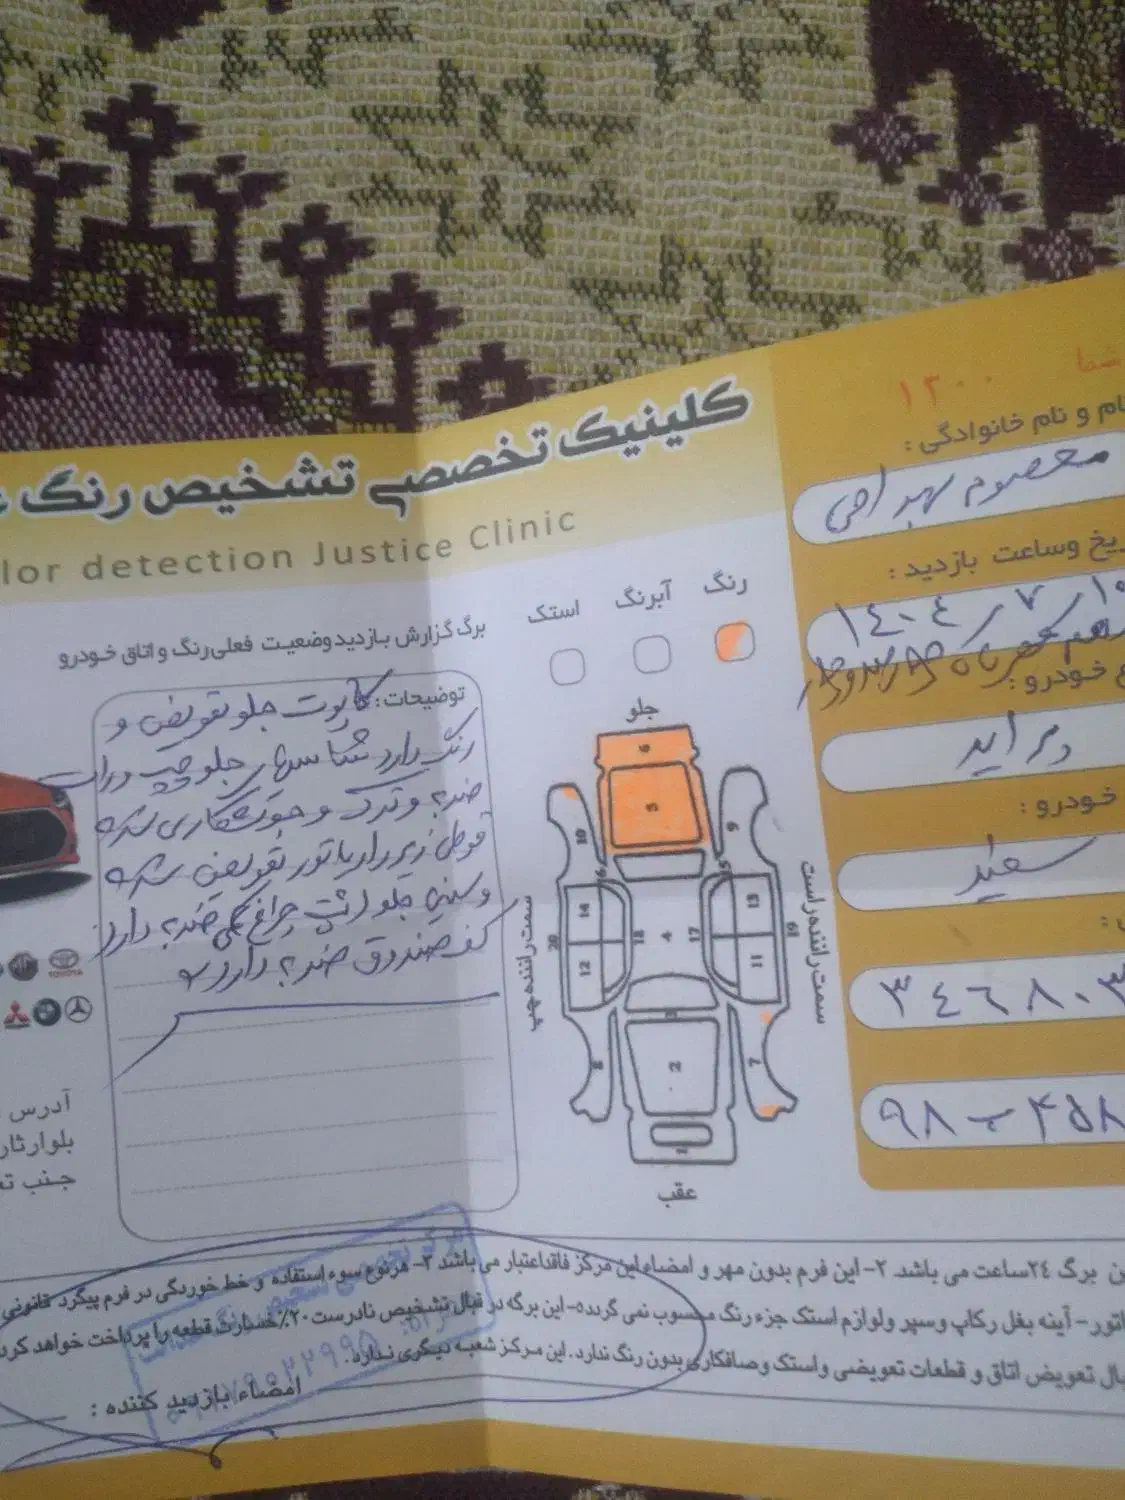 کلینیک تخصصی تشخیص رنگ
lor detection Justice Clinic
شما
۱۳۰۰
نام و نام خانوادگی :
معصوم
ریخ وساعت بازدید :
۱٤۰٤/۷/۱۰
ع خودرو :
پراید
خودرو :
سفید
۳٤٦۸۰۳
۹۸-۴۵۸
رنگ
آبرنگ
استک
برگ گزارش بازدیدوضعیت فعلی رنگ و اتاق خودرو
توضیحات: کاپوت جلو تعویض و
رنگ دارد شاسیهای جلو چپ وراست
ضربه و ترک و جوشکاری شده
قوطی زیر رادیاتور تعویض شده
و سینی جلو پشت چراغ کمی ضربه دارد
کف صندوق ضربه دارد
جلو
6
5
10
9
16
15
14
13
18
4
17
20
19
12
11
3
8
2
7
1
سمت راننده چپ
سمت راننده راست
عقب
TOYOTA
آدرس
بلوار
جنب
برگ ٢٤ساعت می باشد ۲- این فرم بدون مهر و امضاءاین مرکز فاقداعتبار می باشد ۳- هرنوع سوء استفاده و خط خوردگی در فرم پیگرد قانونی
اتور- آینه بغل رکاپ وسپر ولوازم استک جزء رنگ محسوب نمی گردده- این برگه در قبال تشخیص نادرست ۲۰٪خسارت قطعه را پرداخت خواهد کرد
بال تعویض اتاق و قطعات تعویضی واستک وصافکاری بدون رنگ ندارد. این مرکز شعبه دیگری ندارد.
امضاء بازدید کننده :